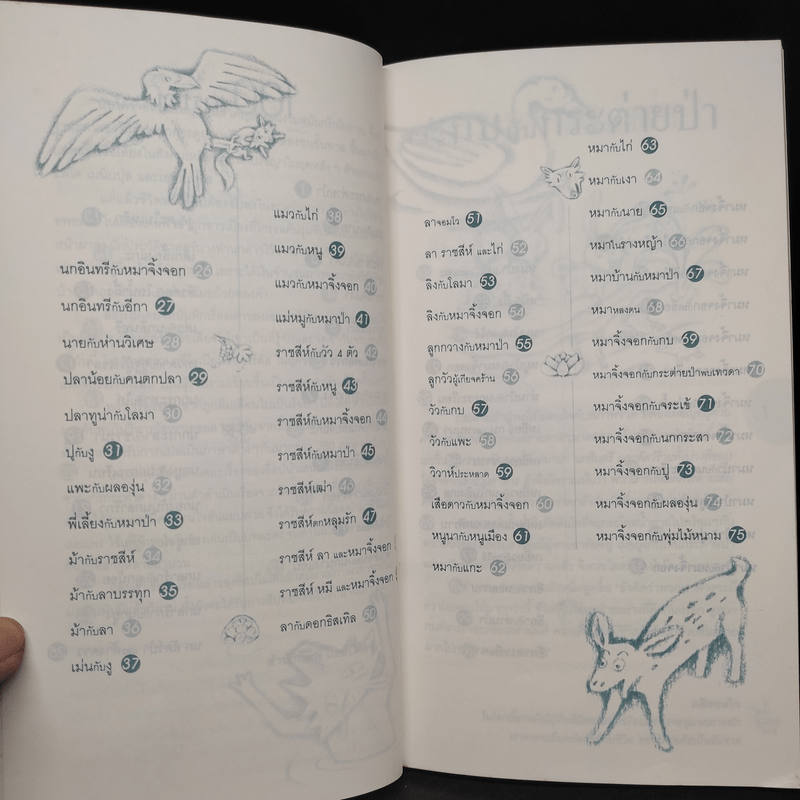 นกอินทรีกับหมาจิ้งจอก 26
นกอินทรีกับอีกา 27
นายกับห่านวิเศษ 28
ปลาน้อยกับคนตกปลา 29
ปลาทูน่ากับโลมา 30
ปูกับงู 31
แพะกับผลองุ่น 32
พี่เลี้ยงกับหมาป่า 33
ม้ากับราชสีห์ 34
ม้ากับลาบรรทุก 35
ม้ากับลา 36
เม่นกับงู 37
แมวกับไก่ 38
แมวกับหนู 39
แมวกับหมาจิ้งจอก 40
แม่หมูกับหมาป่า 41
ราชสีห์กับวัว 4 ตัว 42
ราชสีห์กับหนู 43
ราชสีห์กับหมาจิ้งจอก 44
ราชสีห์กับหมาป่า 45
ราชสีห์เฒ่า 46
ราชสีห์ตกหลุมรัก 47
ราชสีห์ ลา และหมาจิ้งจอก
ราชสีห์ หมี และหมาจิ้งจอก
ลากับดอกธิสเทิล 50
ลาจอมโว 51
ลา ราชสีห์ และไก่ 52
ลิงกับโลมา 53
ลิงกับหมาจิ้งจอก 54
ลูกกวางกับหมาป่า 55
ลูกวัวผู้เกียจคร้าน 56
วัวกับกบ 57
วัวกับแพะ 58
วิวาห์ประหลาด 59
เสือดาวกับหมาจิ้งจอก 60
หนูนากับหนูเมือง 61
หมากับแกะ 62
หมากับไก่ 63
หมากับเงา 64
หมากับนาย 65
หมาในรางหญ้า 66
หมาบ้านกับหมาป่า 67
หมาหลงตน 68
หมาจิ้งจอกกับกบ 69
หมาจิ้งจอกกับกระต่ายป่าพบเทวดา 70
หมาจิ้งจอกกับจระเข้ 71
หมาจิ้งจอกกับนกกระสา 72
หมาจิ้งจอกกับปู 73
หมาจิ้งจอกกับผลองุ่น 74
หมาจิ้งจอกกับพุ่มไม้หนาม 75